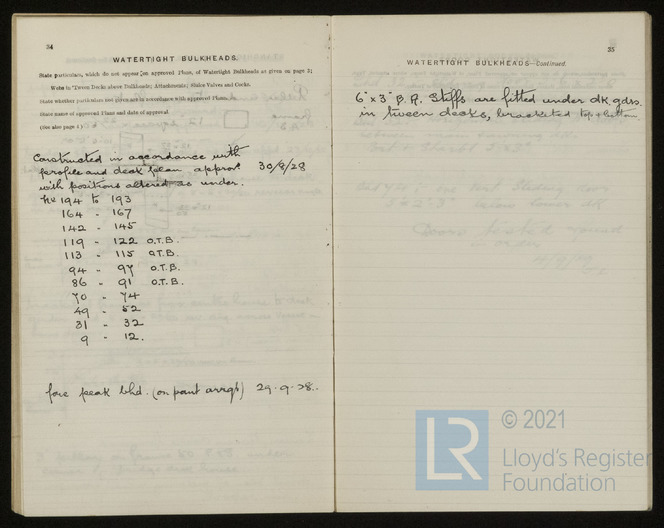 34
WATERTIGHT BULKHEADS.
State particulars, which do not appear on approved Plans, of Watertight Bulkheads as given on page 2;
Webs in 'Tween Decks above Bulkheads; Attachments; Sluice Valves and Cocks.
State whether particulars not given are in accordance with approved Plans.
State name of approved Plans and date of approval.
(See also page 4)
Constructed in accordance with
profile and deck plan approvd 30/8/28
with positions altered as under.
No 194 to 193
164 - 167
142 - 145
119 - 122 O.T.B.
113 - 115 O.T.B.
94 - 97 O.T.B.
86 - 91 O.T.B.
70 - 74
49 - 52
31 - 32
9 - 12.
fore peak bhd. (on pant arrgt) 29.9.28.
35
WATERTIGHT BULKHEADS—Continued.
6" x 3" B.A. Stiffs are fitted under dk. gdrs.
in tween decks, bracketed top & bottom
LR
© 2021
Lloyd's Register
Foundation